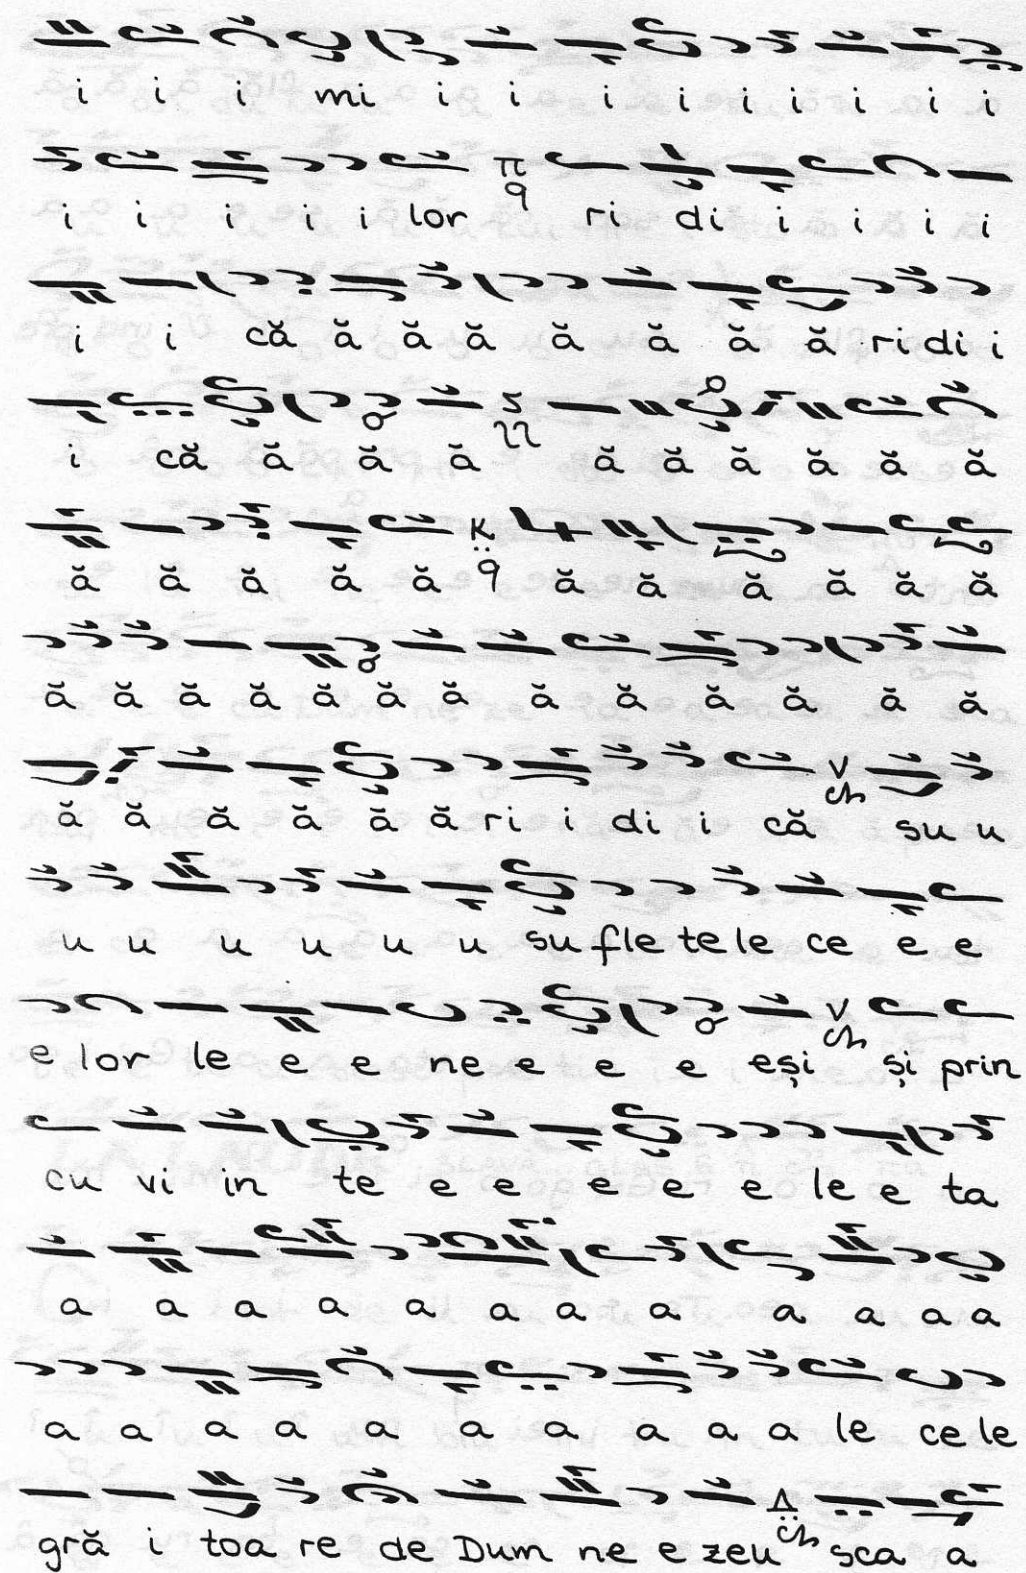 i i i mi i i i i i i i i i
i i i i i lor π q ri di i i i i
i i că ă ă ă ă ă ă ă ri di i
i că ă ă ă ă ă ă ă ă ă
ă ă ă ă ă κ q ă ă ă ă ă ă
ă ă ă ă ă ă ă ă ă ă ă ă ă
ă ă ă ă ă ă ri i di i că su u
u u u u u u su fle te le ce e e
e lor le e e ne e e e eși și prin
cu vi in te e e e e e le e ta
a a a a a a a a a a a a
a a a a a a a a a a le ce le
gră i toa re de Dum ne e zeu Δ sca a